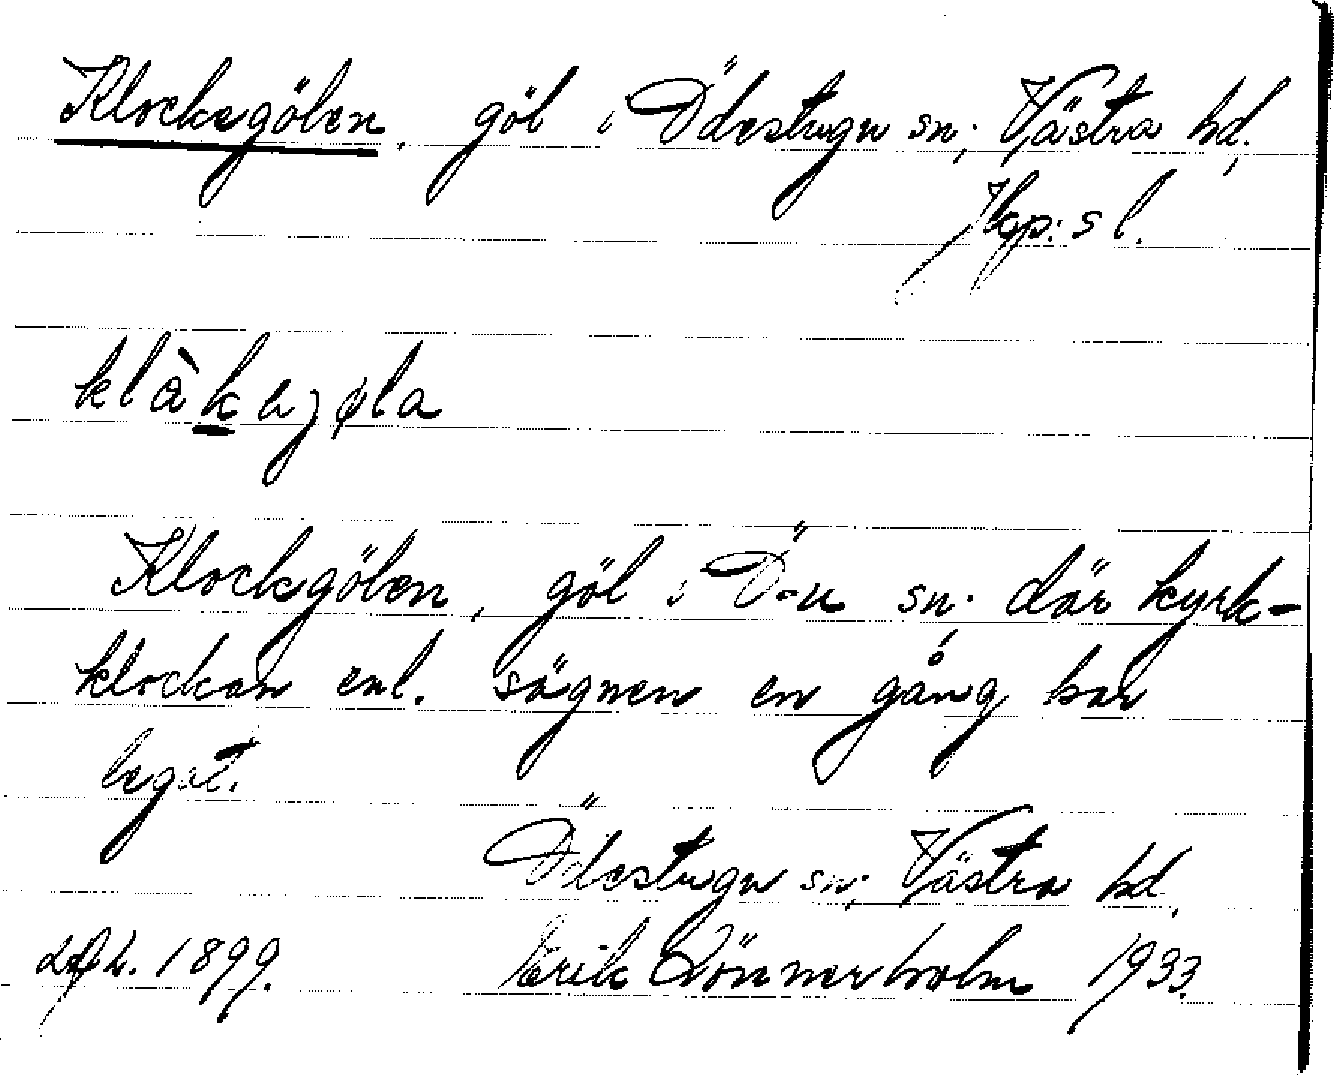 Klockegölen, göl i Ödestugu sn; Västra hd,
Jkp:s l.
klàkajøla
Klockgölen, göl i Ö-u sn. där kyrk-
klockan enl. sägnen en gång har
legat.
Ödestugu sn; Västra hd.
1899. Erik Lönnerholm 1933.